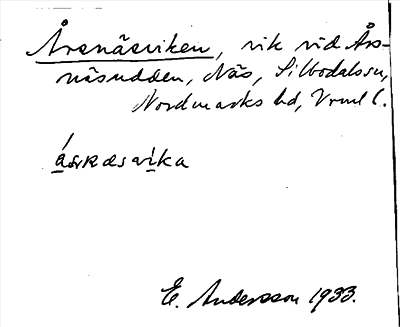 Årsnäsviken, vik vid Års-
näsudden, Näs, Silbodals sn,
Nordmarks hd, Vrml l.
E. Andersson 1933.